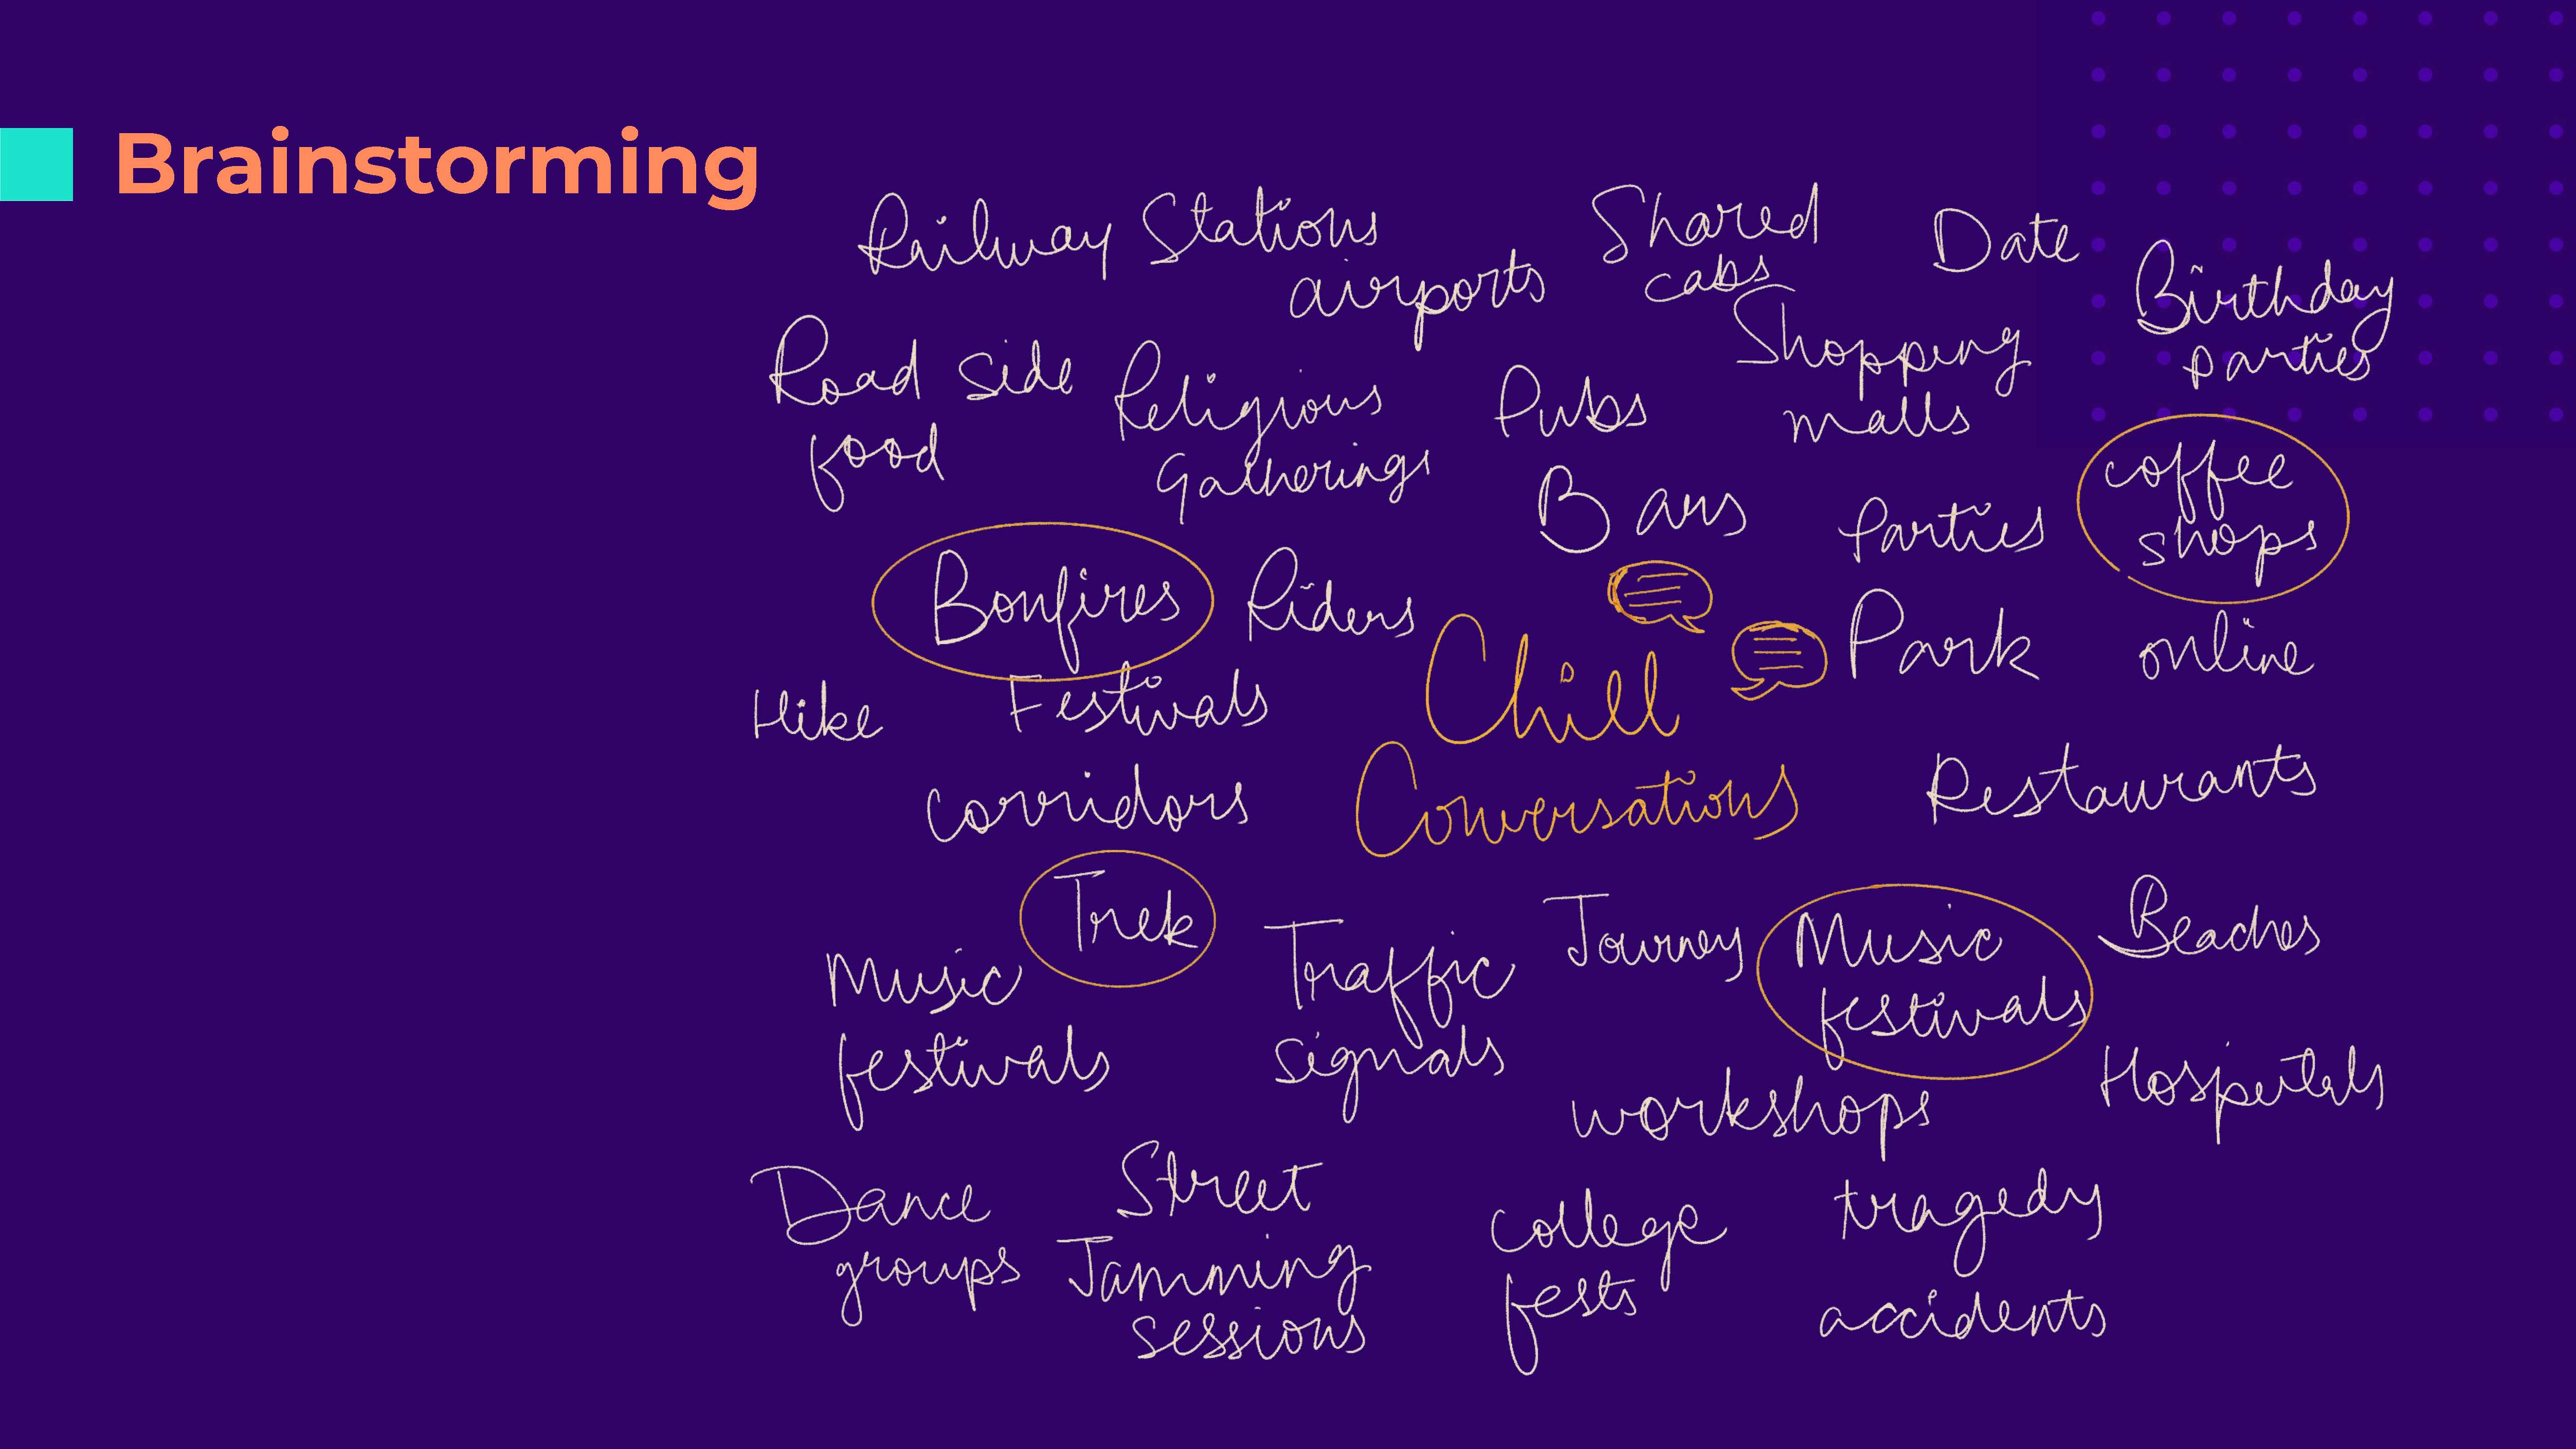 Brainstorming
Railway Stations
airports
Shared
cabs
Date
Birthday
parties
Road Side
food
Religious
Gatherings
Pubs
Shopping
malls
Bars
Parties
coffee
shops
Bonfires
Riders
Park
online
Hike
Festivals
Chill
Conversations
corridors
Restaurants
Trek
Music
festivals
Traffic
signals
Journey
Music
festivals
Beaches
workshops
Hospitals
Dance
groups
Street
Jamming
sessions
college
fests
tragedy
accidents